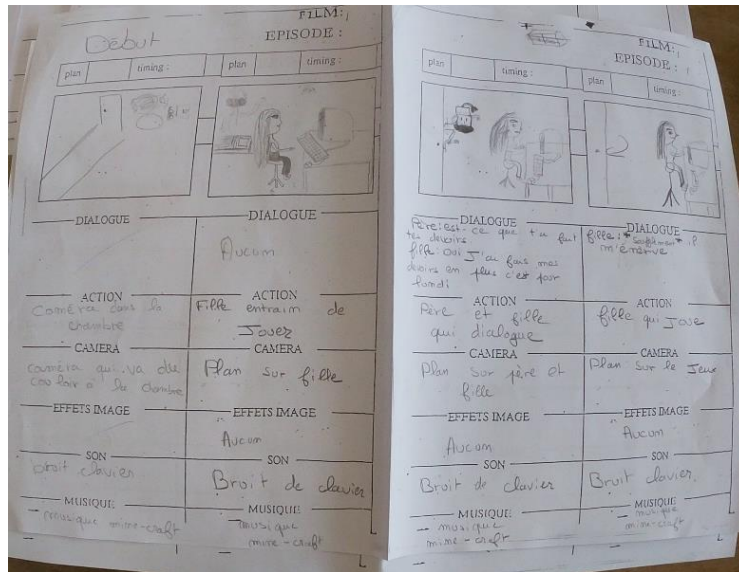 Début
FILM:
EPISODE :
plan
timing :
plan
timing :
DIALOGUE
ACTION
Caméra dans la
chambre
CAMERA
caméra qui va du
couloir a la chambre
EFFETS IMAGE
SON
bruit clavier
MUSIQUE
musique mine-craft
DIALOGUE
Aucum
ACTION
Fille entraim de
Jouer
CAMERA
Plan sur fille
EFFETS IMAGE
Aucum
SON
Bruit de clavier
MUSIQUE
musique
mine-craft
FILM:
EPISODE :
plan
timing :
plan
timing :
DIALOGUE
Père: est-ce que tu fait
tes devoirs
fille: Oui J'ai fais mes
devoirs en plus c'est pour
lundi
ACTION
Père et fille
qui dialogue
CAMERA
Plan sur père et
fille
EFFETS IMAGE
Aucum
SON
Bruit de clavier
MUSIQUE
musique
mime-craft
DIALOGUE
fille: *soufflement* il
m'énerve
ACTION
fille qui Joue
CAMERA
Plan sur le Jeux
EFFETS IMAGE
Aucum
SON
Bruit clavier.
MUSIQUE
musique
mime-craft